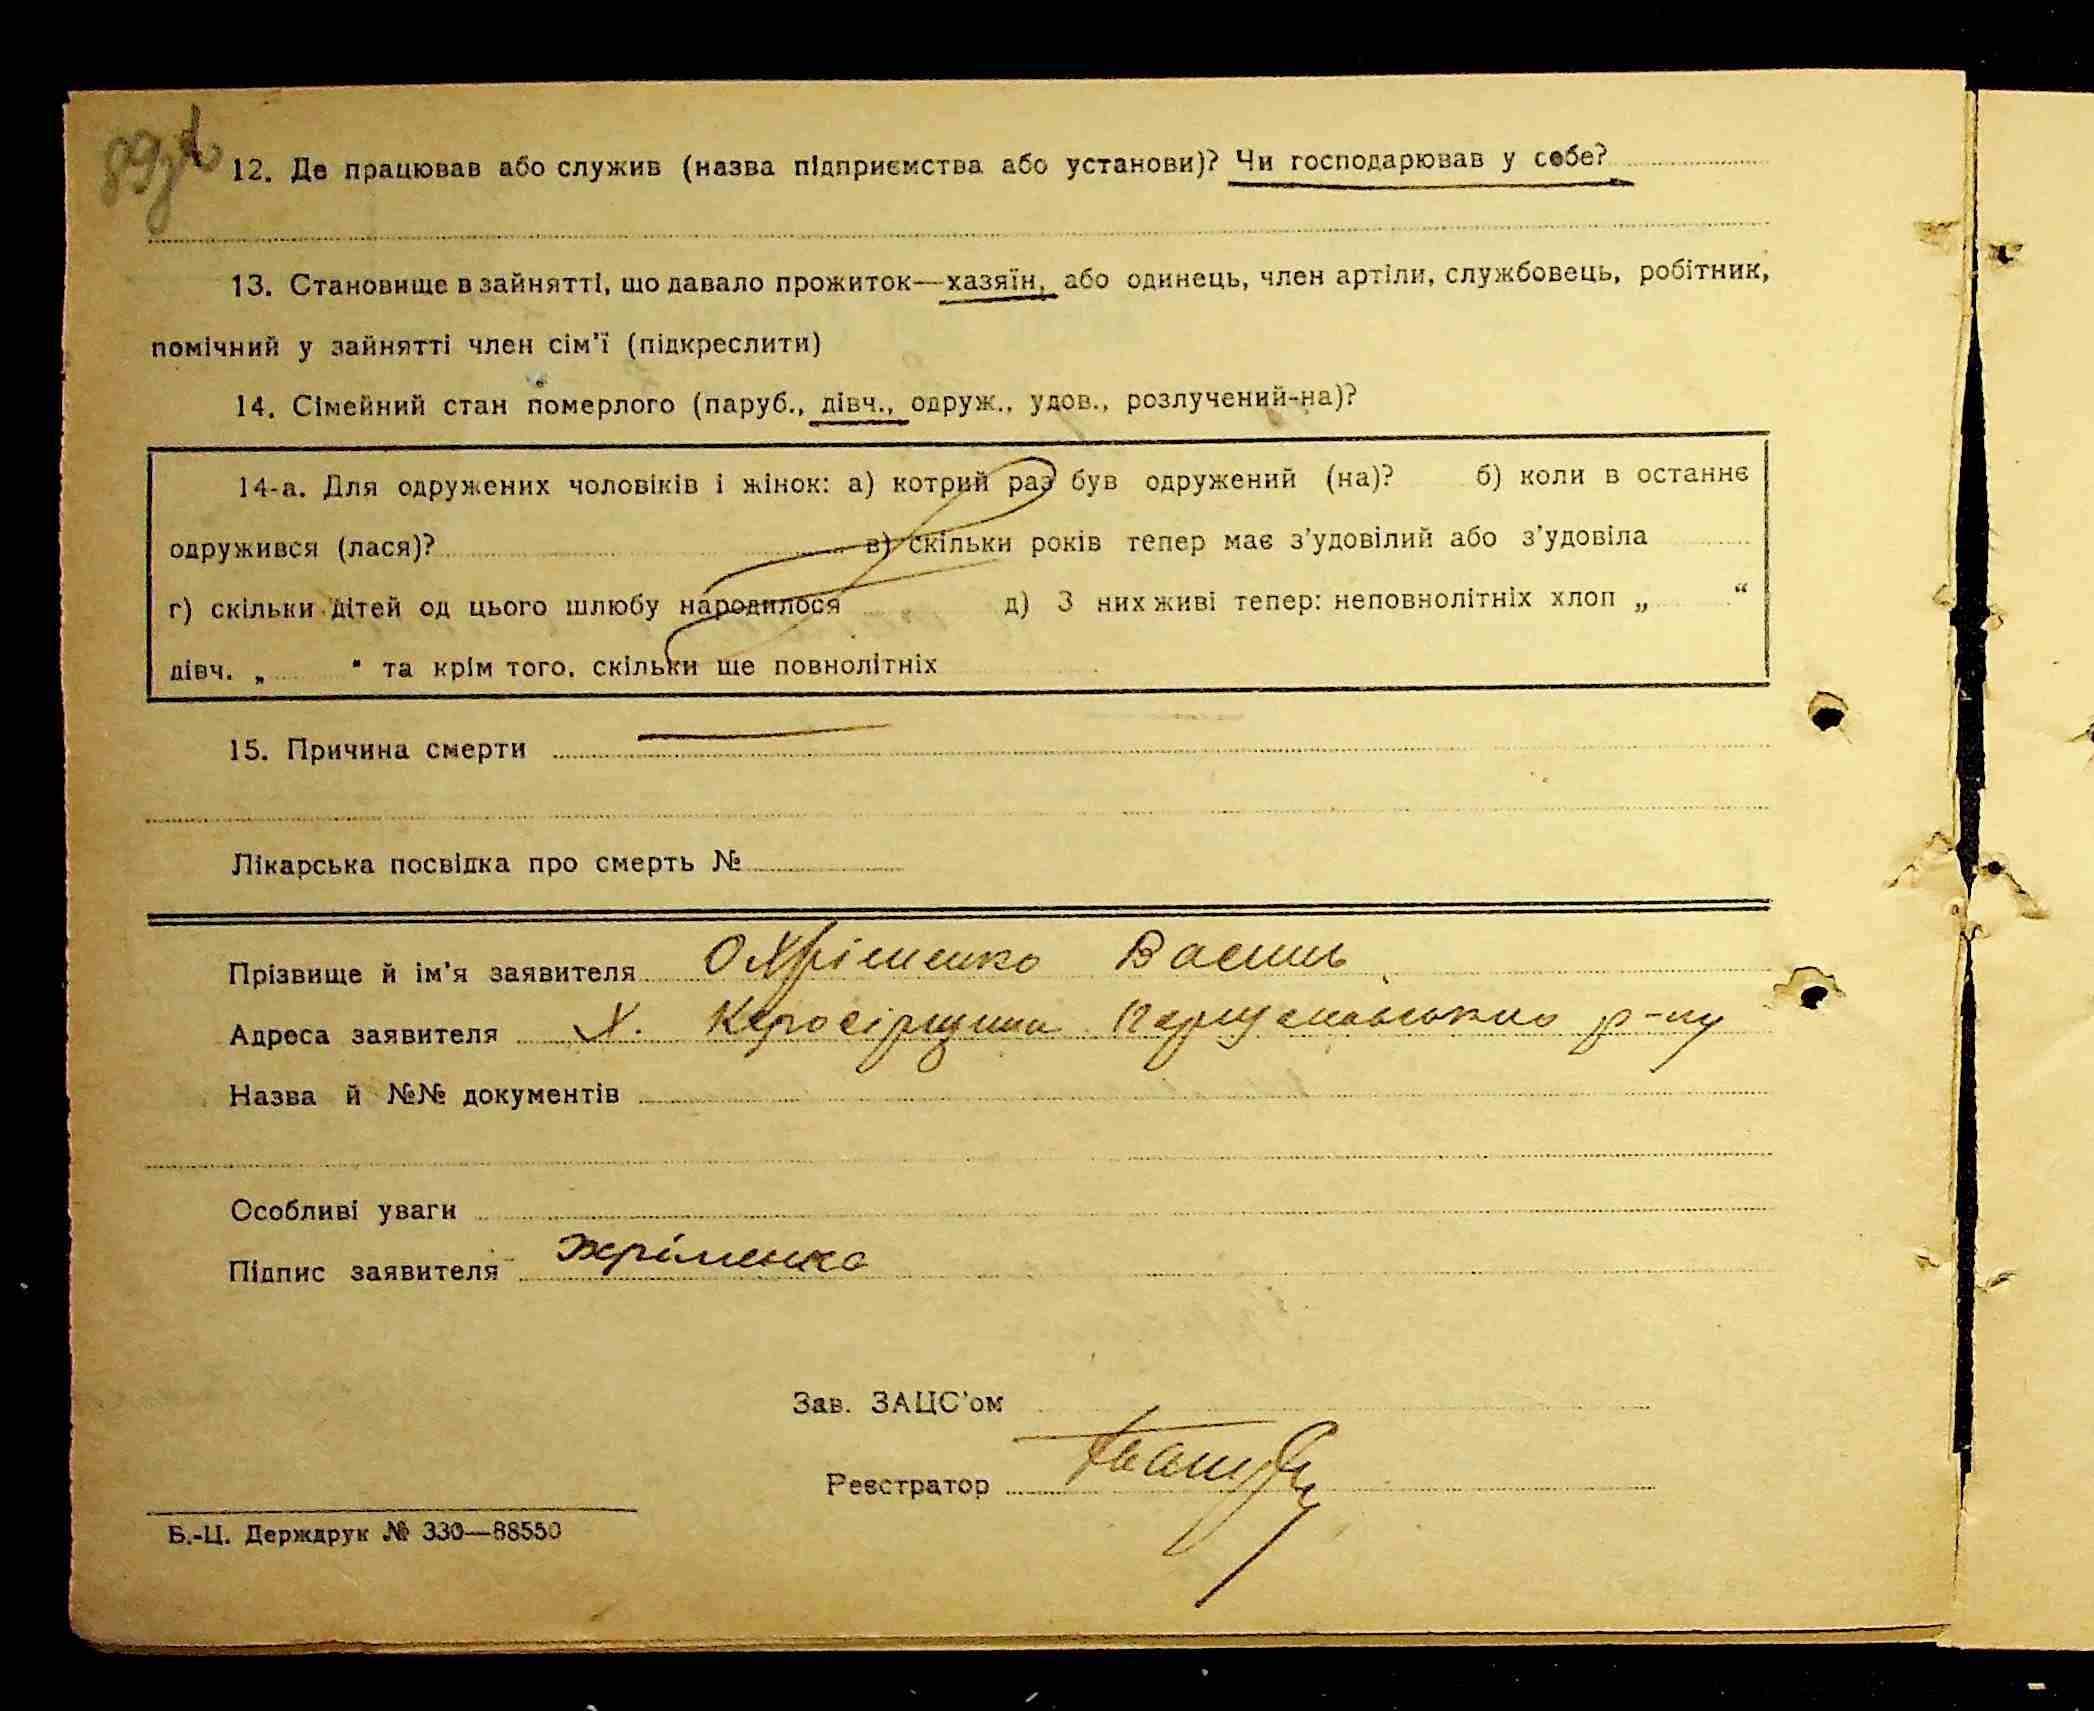 89зв
12. Де працював або служив (назва підприємства або установи)? Чи господарював у себе?
13. Становище в зайнятті, що давало прожиток—хазяїн, або одинець, член артіли, службовець, робітник,
помічний у зайнятті член сім'ї (підкреслити)
14. Сімейний стан померлого (паруб., дівч., одруж., удов., розлучений-на)?
14-а. Для одружених чоловіків і жінок: а) котрий раз був одружений (на)? б) коли в останнє
одружився (лася)? в) скільки років тепер має з'удовілий або з'удовіла
г) скільки дітей од цього шлюбу народилося д) З них живі тепер: неповнолітніх хлоп „ “
дівч. „ “ та крім того, скільки ще повнолітніх
15. Причина смерти
Лікарська посвідка про смерть №
Прізвище й ім'я заявителя Охріменко Василь
Адреса заявителя Х. р-ну
Назва й №№ документів
Особливі уваги
Підпис заявителя Охріменко
Зав. ЗАЦС'ом
Реєстратор
Б.-Ц. Держдрук № 330—88550